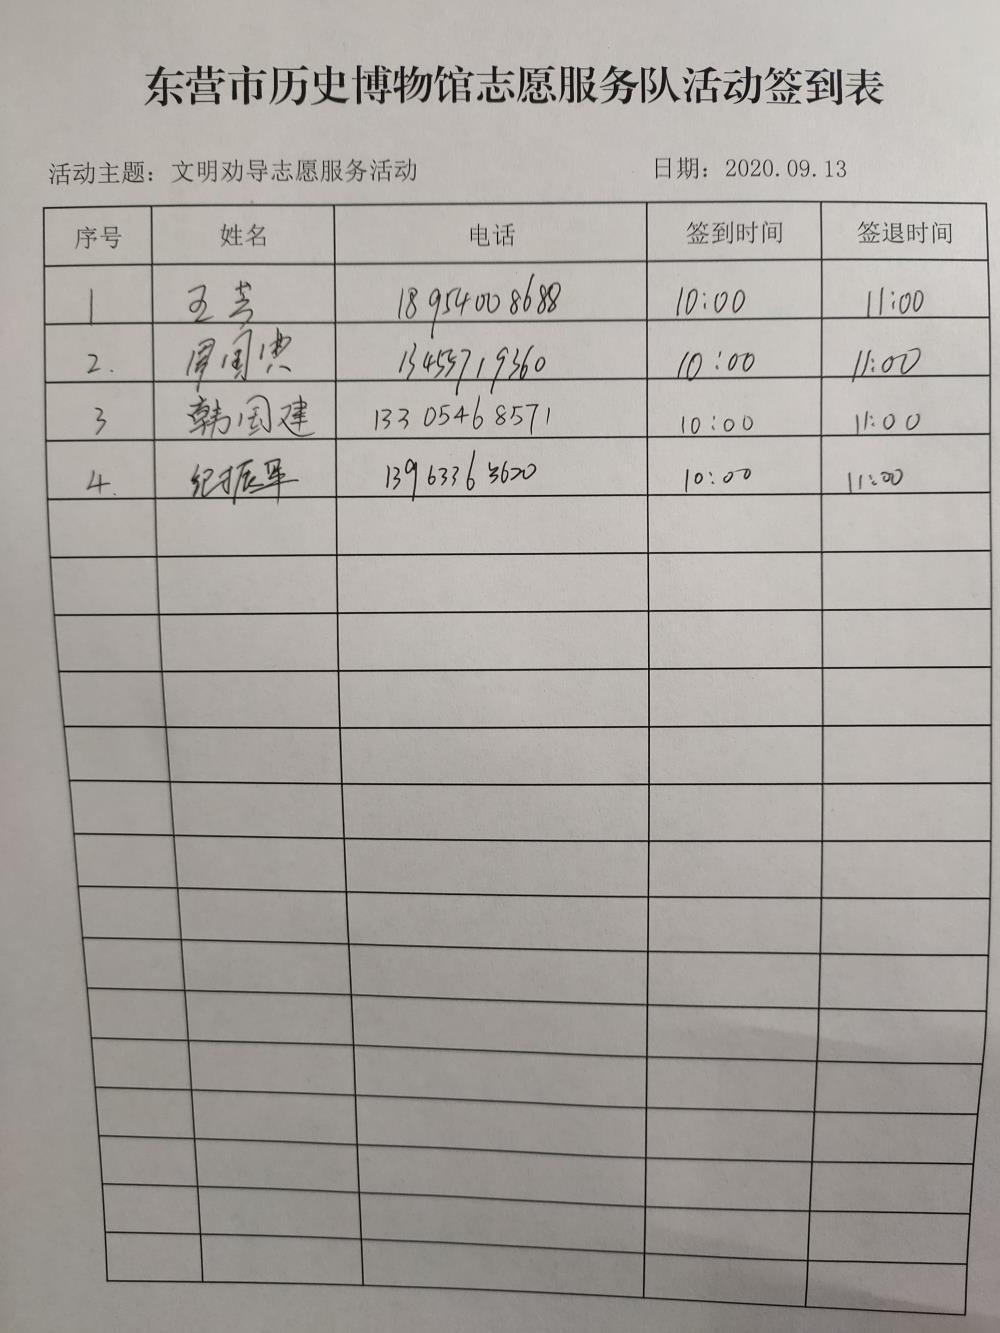 东营市历史博物馆志愿服务队活动签到表
活动主题：文明劝导志愿服务活动 日期：2020.09.13
序号 姓名 电话 签到时间 签退时间
1 王芸 18954008688 10:00 11:00
2. 周国典 13455719360 10:00 11:00
3 韩国建 13305468571 10:00 11:00
4. 纪振军 13963363620 10:00 11:00